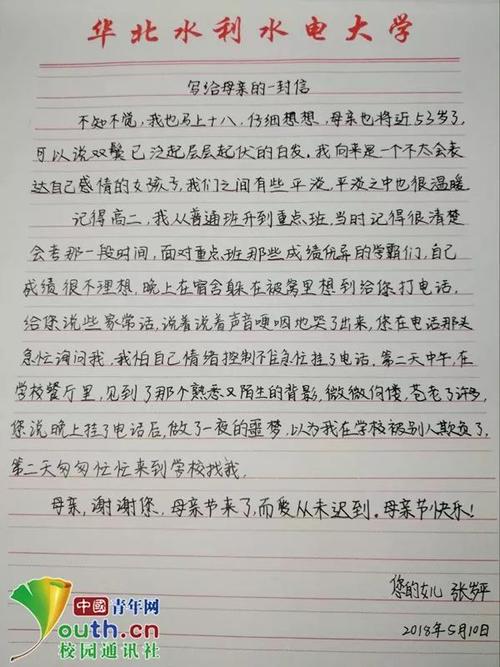 华北水利水电大学
写给母亲的一封信
不知不觉，我也马上十八，仔细想想，母亲也将近53岁了，
可以说双鬓已泛起层层起伏的白发。我向来是一个不太会表
达自己感情的女孩子，我们之间有些平淡，平淡之中也很温暖
记得高二，我从普通班升到重点班，当时记得很清楚
会考那一段时间，面对重点班那些成绩优异的学霸们，自己
成绩很不理想，晚上在宿舍躲在被窝里想到给您打电话，
给您说些家常话，说着说着声音哽咽地哭了出来，您在电话那头
急忙询问我，我怕自己情绪控制不住急忙挂了电话。第二天中午，在
学校餐厅里，见到了那个熟悉又陌生的背影，微微佝偻，苍老了许多，
您说晚上挂了电话后，做了一夜的噩梦，以为我在学校被别人欺负了，
第二天匆匆忙忙来到学校找我。
母亲，谢谢您，母亲节来了，而爱从未迟到。母亲节快乐！
您的女儿 张岁平
2018年5月10日
中國青年网
Youth.cn
校园通讯社